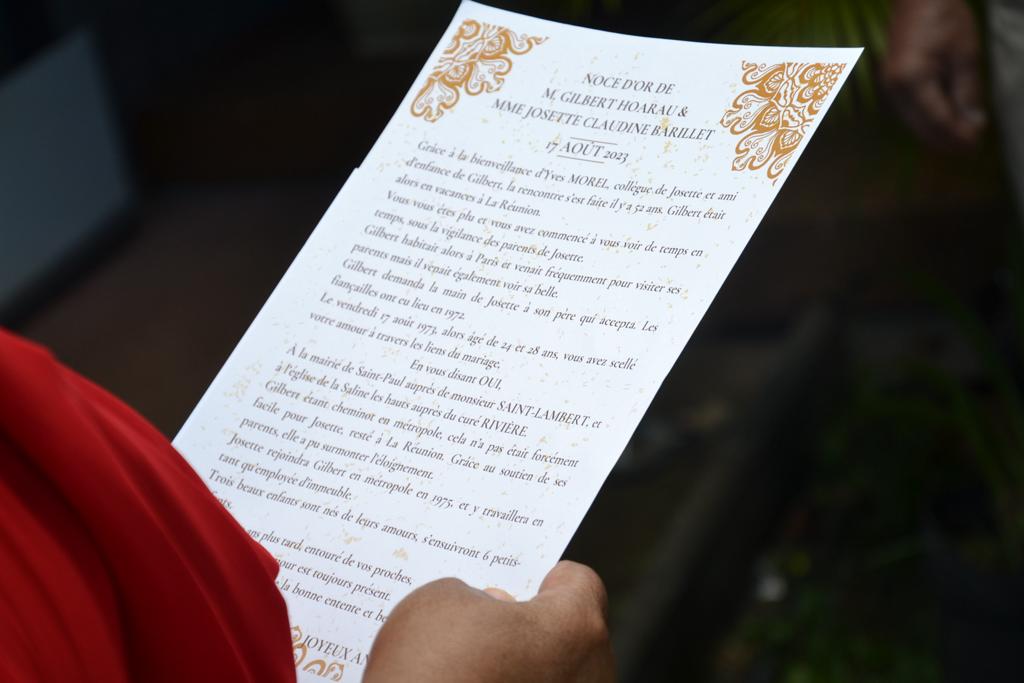 NOCE D'OR DE
M. GILBERT HOARAU &
MME JOSETTE CLAUDINE BARILLET
17 AOÛT 2023
Grâce à la bienveillance d'Yves MOREL, collègue de Josette et ami
d'enfance de Gilbert, la rencontre s'est faite il y a 52 ans. Gilbert était
alors en vacances à La Réunion.
Vous vous êtes plu et vous avez commencé à vous voir de temps en
temps, sous la vigilance des parents de Josette.
Gilbert habitait alors à Paris et venait fréquemment pour visiter ses
parents mais il venait également voir sa belle.
Gilbert demanda la main de Josette à son père qui accepta. Les
fiançailles ont eu lieu en 1972.
Le vendredi 17 août 1973, alors âgé de 24 et 28 ans, vous avez scellé
votre amour à travers les liens du mariage.
En vous disant OUI,
À la mairie de Saint-Paul auprès de monsieur SAINT-LAMBERT, et
à l'église de la Saline les hauts auprès du curé RIVIÈRE.
Gilbert étant cheminot en métropole, cela n'a pas était forcément
facile pour Josette, resté à La Réunion. Grâce au soutien de ses
parents, elle a pu surmonter l'éloignement.
Josette rejoindra Gilbert en métropole en 1975, et y travaillera en
tant qu'employée d'immeuble.
Trois beaux enfants sont nés de leurs amours, s'ensuivront 6 petits-
ans plus tard, entouré de vos proches,
our est toujours présent.
la bonne entente et
JOYEUX AN